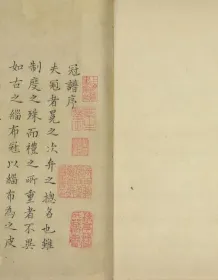 冠譜序
夫冠者冕之次弁之揔名也雖
制度之殊而禮之所重者不異
如古之緇布冠以緇布為之皮